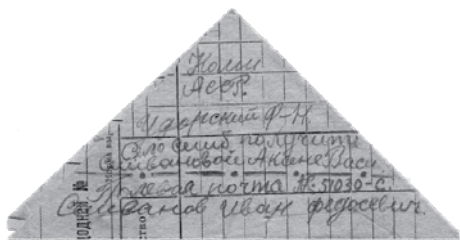 Коми
АССР.
Удорский р-н
село
получити
Селивановой Аксинье Васи
Полевая почта № 51030-С.
Селиванов Иван Федосеевич.